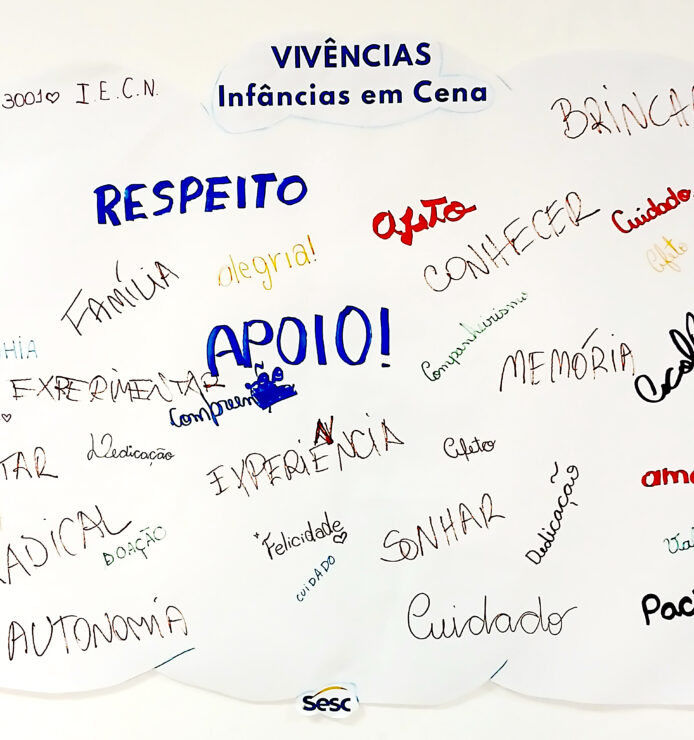 VIVÊNCIAS
Infâncias em Cena
3001♡ I.E.C.N.
BRINCA
RESPEITO
afeto
Cuidado
CONHECER
Afeto
FAMÍLIA
alegria!
APOIO!
Companheirismo
MEMÓRIA
HIA
EXPERIMENTAR
Compreensão
TAR
Dedicação
EXPERIÊNCIA
Afeto
Dedicação
ADICAL
DOAÇÃO
*Felicidade
CUIDADO
SONHAR
AUTONOMIA
Cuidado
Paci
Sesc